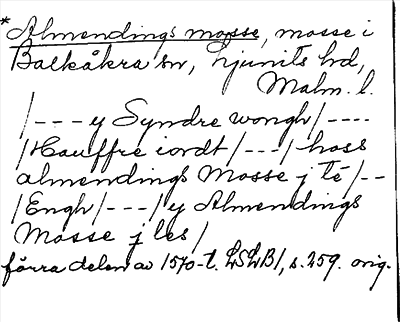 *Almendings mosse, mosse i
Balkåkra sn, Ljunits hd,
Malm. l.
/--- y Syndre wongh/----
/Hauffre iordt/---/hoss
almendings Mosse j té/--
/Engh/---/y Almendings
Mosse j les/
förra delen av 1570-t. LSLB1, s. 259. orig.